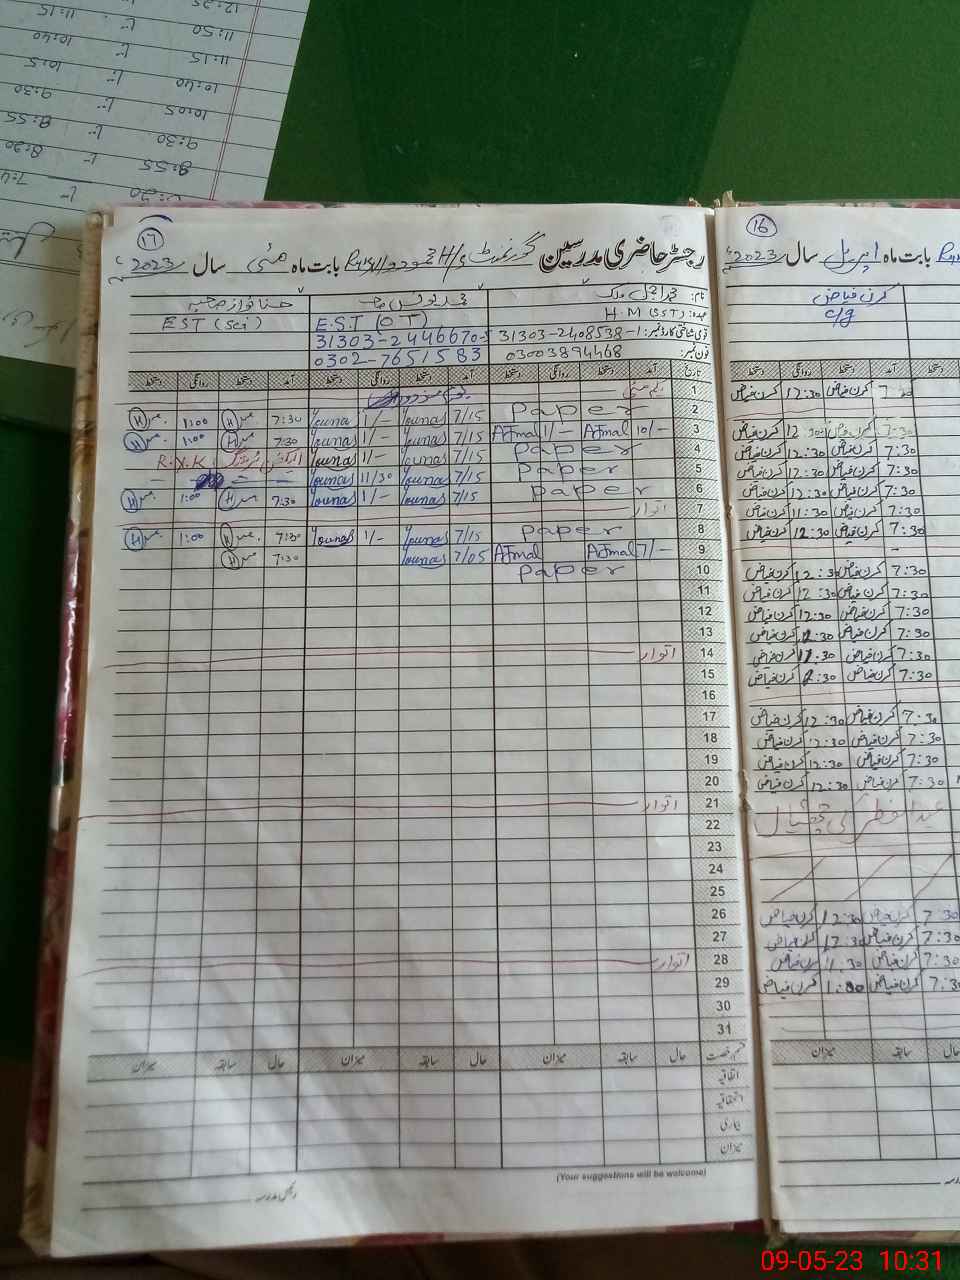 ۱۷
رجسٹر حاضری مدرسین گورنمنٹ H/S بابت ماہ مئی سال 2023ء
نام: محمد اجمل ملک محمد یونس صاحب حسنا نواز صاحبہ
عہدہ: H.M (SST) E.S.T (OT) EST (Sci)
قومی شناختی کارڈ نمبر: 31303-2408538-1 31303-2446670-5
فون نمبر: 03003894468 0302-7651583
تاریخ آمد دستخط روانگی دستخط آمد دستخط روانگی دستخط آمد دستخط روانگی دستخط
1 یکم مئی
2 Paper 7/15 Younas 1/- Younas 7:30 H 1:00 H
3 10/- Ajmal 1/- Ajmal 7/15 Younas 1/- Younas 7:30 H 1:00 H
4 Paper 7/15 Younas 1/- Younas R.Y.K
5 Paper 7/15 Younas 11/30 Younas
6 Paper 7/15 Younas 1/- Younas 7:30 H 1:00 H
7 اتوار
8 Paper 7/15 Younas 1/- Younas 7:30 H 1:00 H
9 7/- Ajmal Ajmal 7/05 Younas 7:30 H
10 Paper
11
12
13
14 اتوار
15
16
17
18
19
20
21 اتوار
22
23
24
25
26
27
28 اتوار
29
30
31
قسم رخصت حال سابقہ میزان حال سابقہ میزان حال سابقہ میزان
اتفاقیہ
استحقاقیہ
بیماری
میزان
(Your suggestions will be welcome)
رئیس مدرسہ
۱۶
بابت ماہ اپریل سال 2023ء
کرن فیاض
c/g
آمد دستخط روانگی دستخط
کرن فیاض 12:30 کرن فیاض
7:30 کرن فیاض 12:30 کرن فیاض
7:30 کرن فیاض 12:30 کرن فیاض
7:30 کرن فیاض 12:30 کرن فیاض
7:30 کرن فیاض 12:30 کرن فیاض
7:30 کرن فیاض 11:30 کرن فیاض
7:30 کرن فیاض 12:30 کرن فیاض
7:30 کرن فیاض 12:30 کرن فیاض
7:30 کرن فیاض 12:30 کرن فیاض
7:30 کرن فیاض 12:30 کرن فیاض
7:30 کرن فیاض 12:30 کرن فیاض
7:30 کرن فیاض 11:30 کرن فیاض
7:30 کرن فیاض 12:30 کرن فیاض
7:30 کرن فیاض 12:30 کرن فیاض
7:30 کرن فیاض 12:30 کرن فیاض
7:30 کرن فیاض 12:30 کرن فیاض
7:30 کرن فیاض 12:30 کرن فیاض
عید الفطر کی چھٹیاں
7:30 کرن فیاض 12:30 کرن فیاض
7:30 کرن فیاض 12:30 کرن فیاض
7:30 کرن فیاض 11:30 کرن فیاض
7:30 کرن فیاض 1:00 کرن فیاض
حال سابقہ میزان
11:50 تا 11:15
11:15 تا 10:40
10:40 تا 10:5
10:05 تا 9:30
9:30 تا 8:55
8:55 تا 8:20
09-05-23 10:31